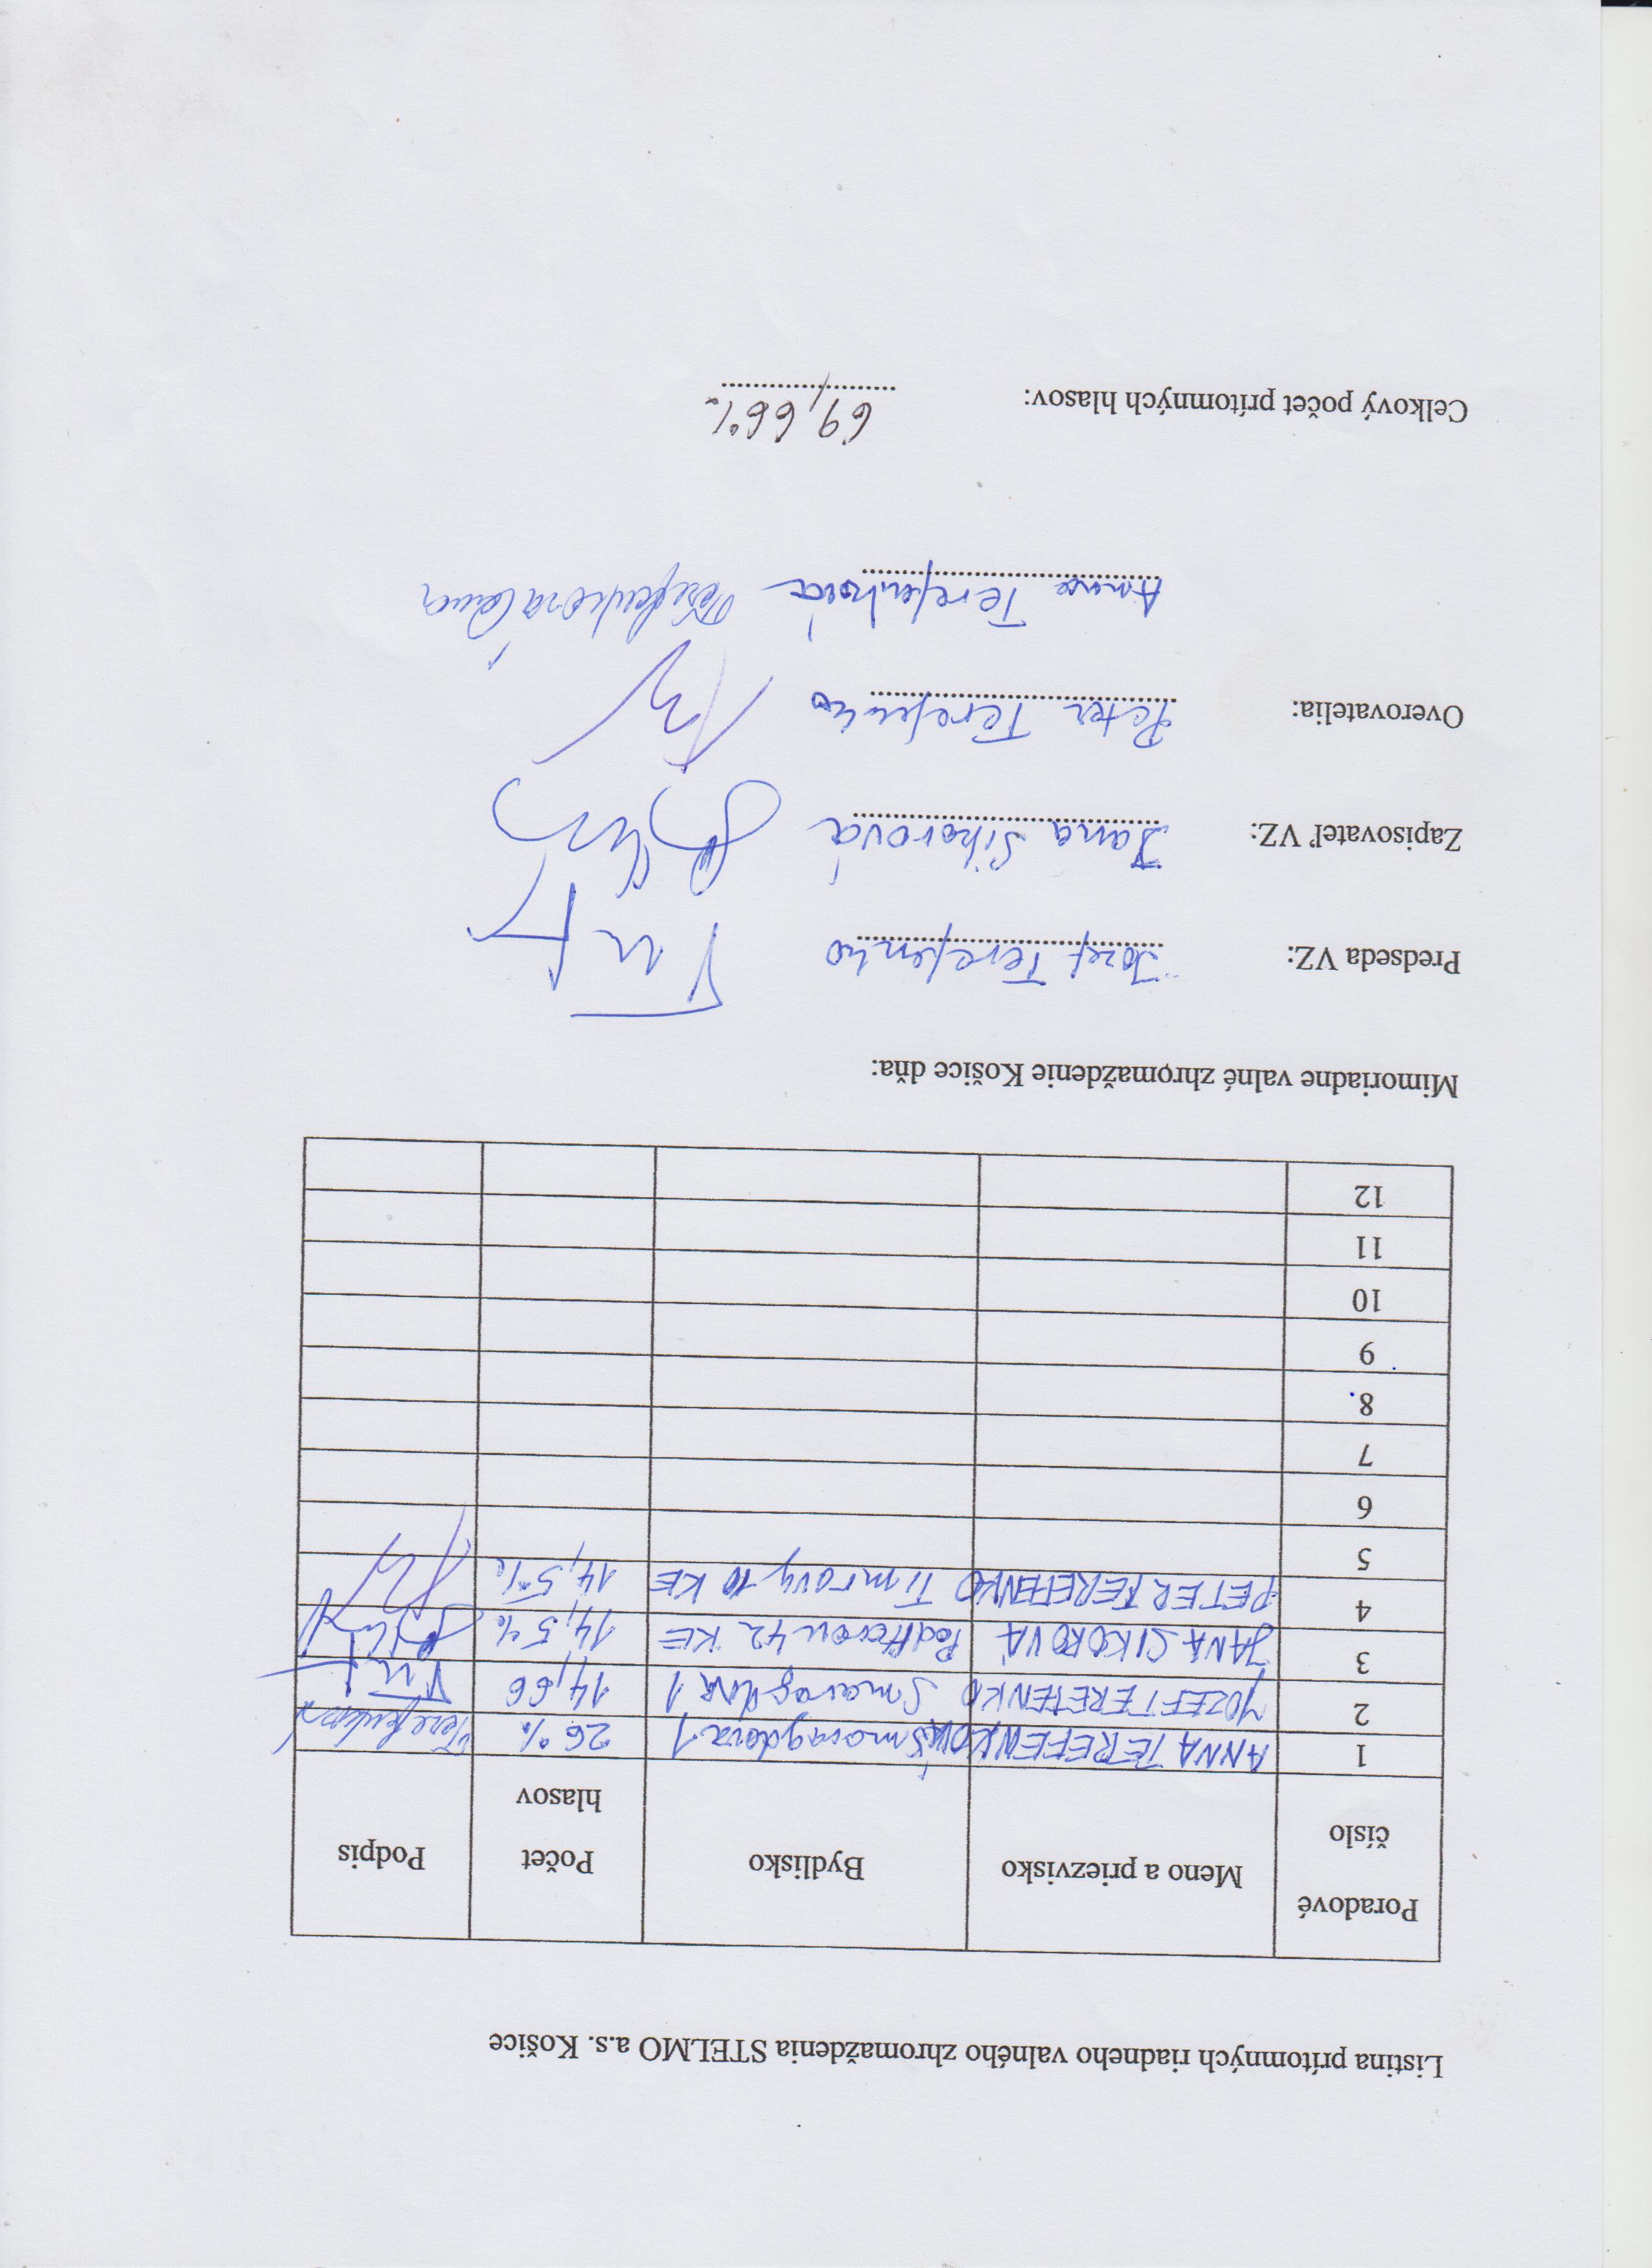 Listina prítomných riadneho valného zhromaždenia STELMO a.s. Košice
Poradové číslo Meno a priezvisko Bydlisko Počet hlasov Podpis
1 ANNA TEREFENKOVÁ Smaragdova 1 26%
2 JOZEF TEREFENKO Smaragdova 1 14,66
3 JANA SIKOROVÁ 42 KE 14,5%
4 PETER TEREFENKO Timravy 10 KE 14,5%
5
6
7
8.
9
10
11
12
Mimoriadne valné zhromaždenie Košice dňa:
Predseda VZ: Jozef Terefenko
Zapisovateľ VZ: Jana Sikorová
Overovatelia: Peter Terefenko
Anna Terefenková
Celkový počet prítomných hlasov: 69,66%